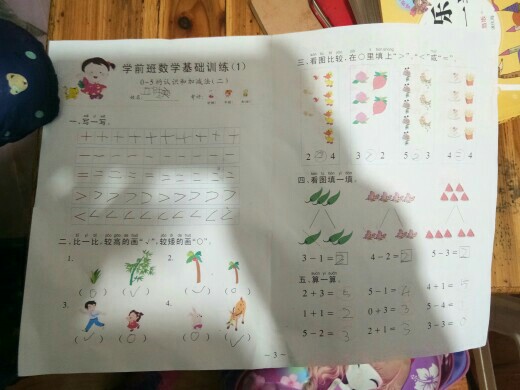 学前班数学基础训练(1)
0-5的认识和加减法(二)
一、描一描。
二、比一比,较高的画"√",较矮的画"○"。
1.
2.
(○)
(√)
(√)
(○)
3.
4.
(√)
(○)
(○)
(√)
- 3 -
三、看图比较,在○里填上">"、"<"或"="。
2
4
3
2
5
3
4
4
四、看图填一填。
3-1=2
4-2=2
5-3=2
五、算一算。
2+3=5
5-1=4
4+1=5
1+1=2
0+3=3
5-4=
5-2=3
2+1=3
3-3=